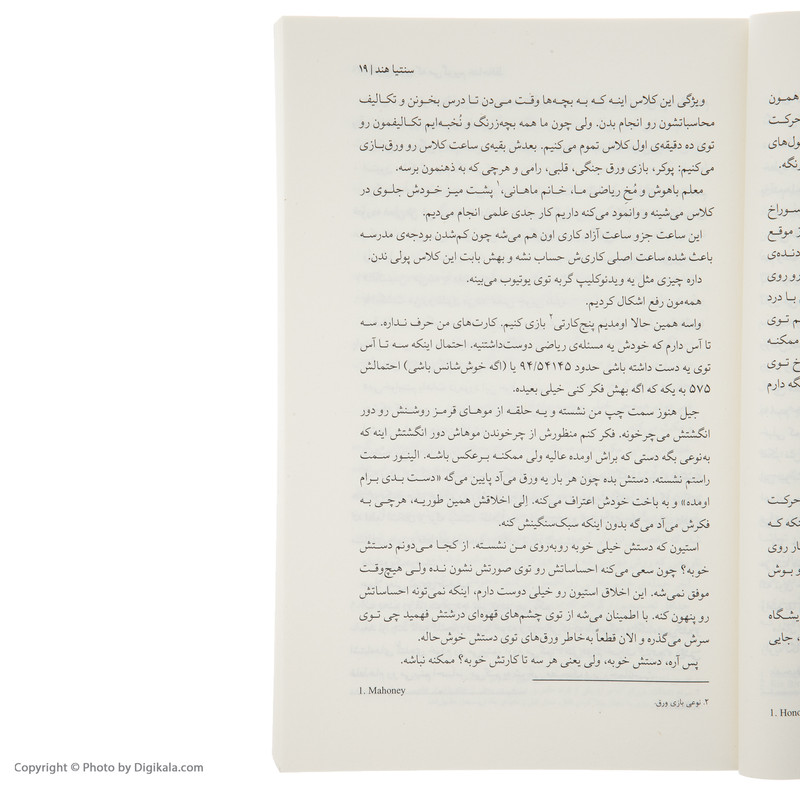 سنتیا هند | ۱۹
ویژگی این کلاس اینه که به بچه‌ها وقت می‌دن تا درس بخونن و تکالیف
محاسباتشون رو انجام بدن. ولی چون ما همه بچه‌زرنگ و نُخبه‌ایم تکالیفمون رو
توی ده دقیقه‌ی اول کلاس تموم می‌کنیم. بعدش بقیه‌ی ساعت کلاس رو ورق‌بازی
می‌کنیم: پوکر، بازی ورق جنگی، قلبی، رامی و هرچی که به ذهنمون برسه.
معلم باهوش و مُخِ ریاضی ما، خانم ماهانی،۱ پشت میز خودش جلوی در
کلاس می‌شینه و وانمود می‌کنه داریم کار جدی علمی انجام می‌دیم.
این ساعت جزو ساعت آزاد کاری اون هم می‌شه چون کم‌شدن بودجه‌ی مدرسه
باعث شده ساعت اصلی کاری‌ش حساب نشه و بهش بابت این کلاس پولی ندن.
داره چیزی مثل یه ویدئوکلیپ گربه توی یوتیوب می‌بینه.
همه‌مون رفع اشکال کردیم.
واسه همین حالا اومدیم پنج‌کارتی۲ بازی کنیم. کارت‌های من حرف نداره. سه
تا آس دارم که خودش یه مسئله‌ی ریاضی دوست‌داشتنیه. احتمال اینکه سه تا آس
توی یه دست داشته باشی حدود ۹۴/۵۴۱۴۵ یا (اگه خوش‌شانس باشی) احتمالش
۵۷۵ به یکه که اگه بهش فکر کنی خیلی بعیده.
جیل هنوز سمت چپ من نشسته و یه حلقه از موهای قرمز روشنش رو دور
انگشتش می‌چرخونه. فکر کنم منظورش از چرخوندن موهاش دور انگشتش اینه که
به‌نوعی بگه دستی که براش اومده عالیه ولی ممکنه برعکس باشه. الینور سمت
راستم نشسته. دستش بده چون هر بار یه ورق می‌آد پایین می‌گه «دست بدی برام
اومده» و به باخت خودش اعتراف می‌کنه. اِلی اخلاقش همین طوریه، هرچی به
فکرش می‌آد می‌گه بدون اینکه سبک‌سنگینش کنه.
استیون که دستش خیلی خوبه روبه‌روی من نشسته. از کجا می‌دونم دستش
خوبه؟ چون سعی می‌کنه احساساتش رو توی صورتش نشون نده ولی هیچ‌وقت
موفق نمی‌شه. این اخلاق استیون رو خیلی دوست دارم، اینکه نمی‌تونه احساساتش
رو پنهون کنه. با اطمینان می‌شه از توی چشم‌های قهوه‌ای درشتش فهمید چی توی
سرش می‌گذره و الان قطعاً به‌خاطر ورق‌های توی دستش خوش‌حاله.
پس آره، دستش خوبه، ولی یعنی هر سه تا کارتش خوبه؟ ممکنه نباشه.
1. Mahoney
۲. نوعی بازی ورق.
همون
حرکت
ول‌های
رنگه.
سوراخ
ز موقع
دنده‌ی
رو روی
با درد
م توی
ممکنه
خ توی
نگه دارم
حرکت
نکه که
ار روی
و بوش
یشگاه
، جایی
1. Hono
Copyright © Photo by Digikala.com